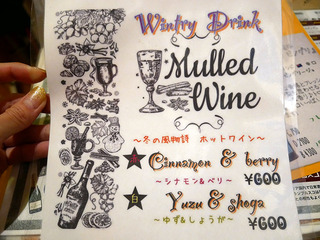 Wintry Drink
Mulled
Wine
～冬の風物詩 ホットワイン～
赤 Cinnamon & berry
～シナモン&ベリー～ ¥600
白 Yuzu & shoga
～ゆず&しょうが～ ¥600